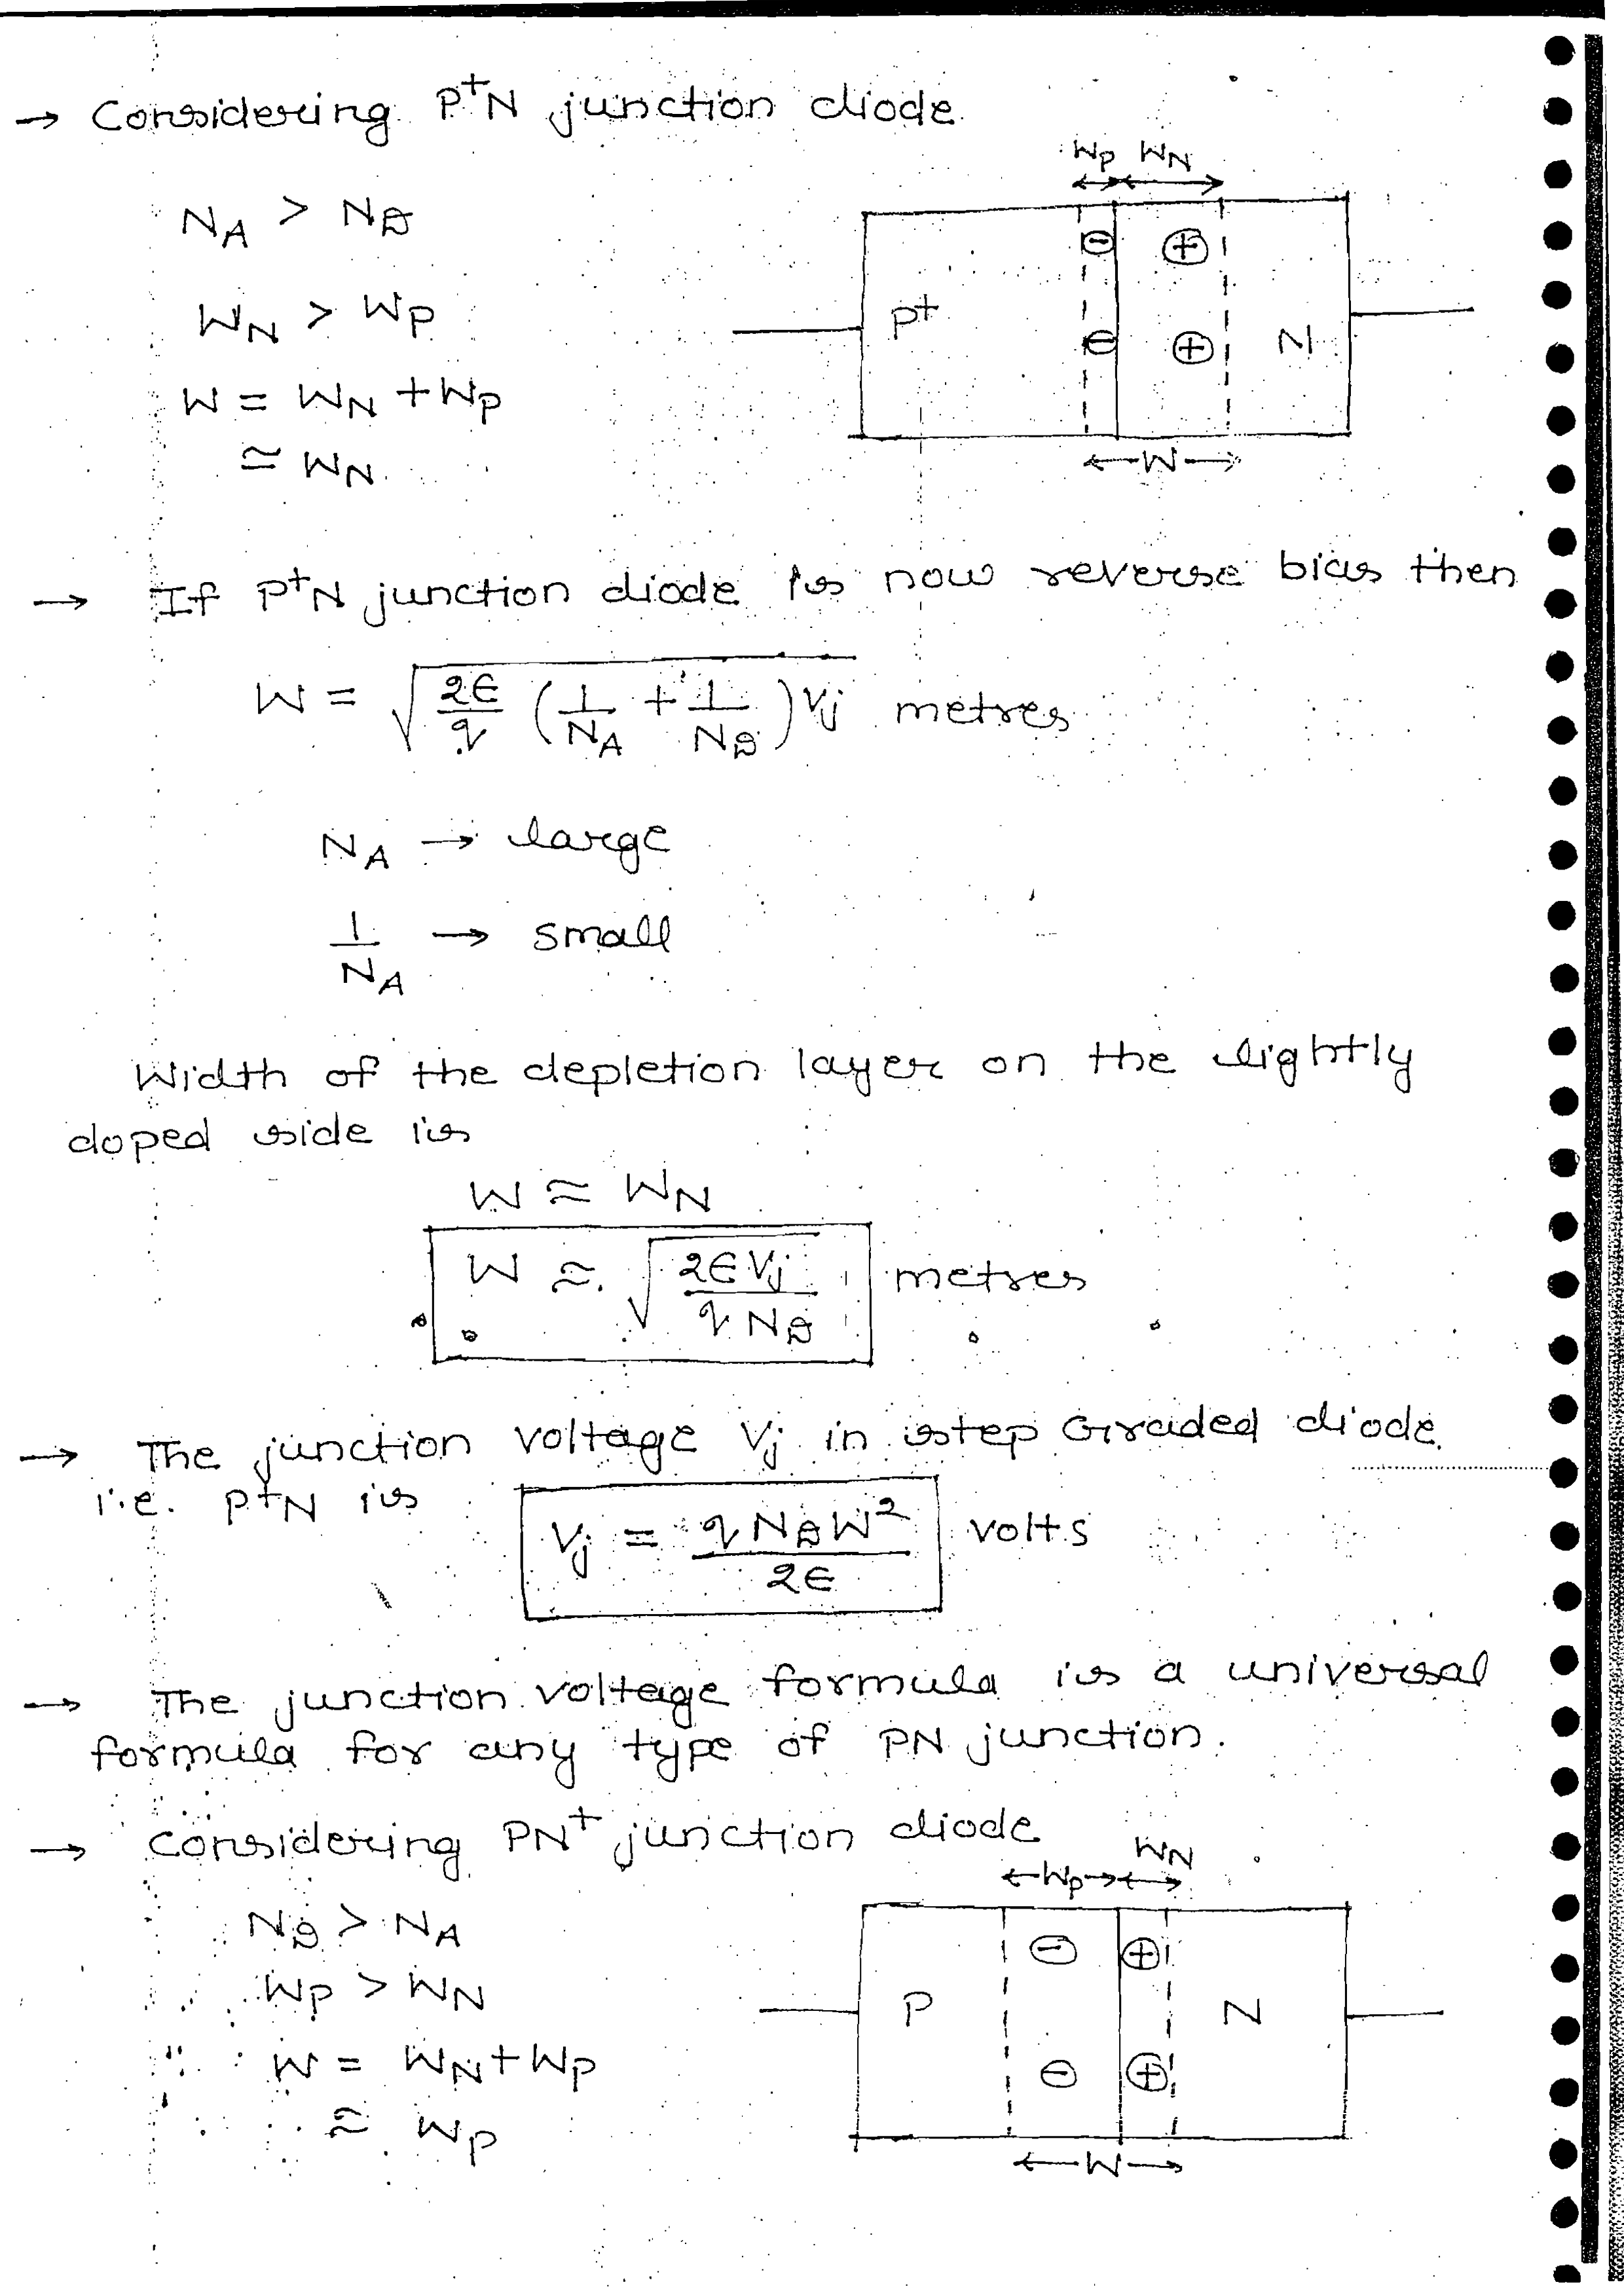 → Considering P⁺N junction diode
W_P W_N
N_A > N_D
W_N > W_P
W = W_N + W_P
≃ W_N
P⁺ ⊖ ⊕
⊖ ⊕ N
←W→
→ If P⁺N junction diode is now reverse bias then
W = √(2ϵ/q (1/N_A + 1/N_D) V_j) metres
N_A → large
1/N_A → small
Width of the depletion layer on the lightly
doped side is
W ≈ W_N
W ≈ √(2ϵV_j / qN_D) metres
→ The junction voltage V_j in step Graded diode
i.e. P⁺N is
V_j = qN_DW² / 2ϵ volts
→ The junction voltage formula is a universal
formula for any type of PN junction.
→ Considering PN⁺ junction diode
←W_P→ W_N
N_D > N_A
W_P > W_N
W = W_N + W_P
≈ W_P
⊖ ⊕
P N
⊖ ⊕
←W→